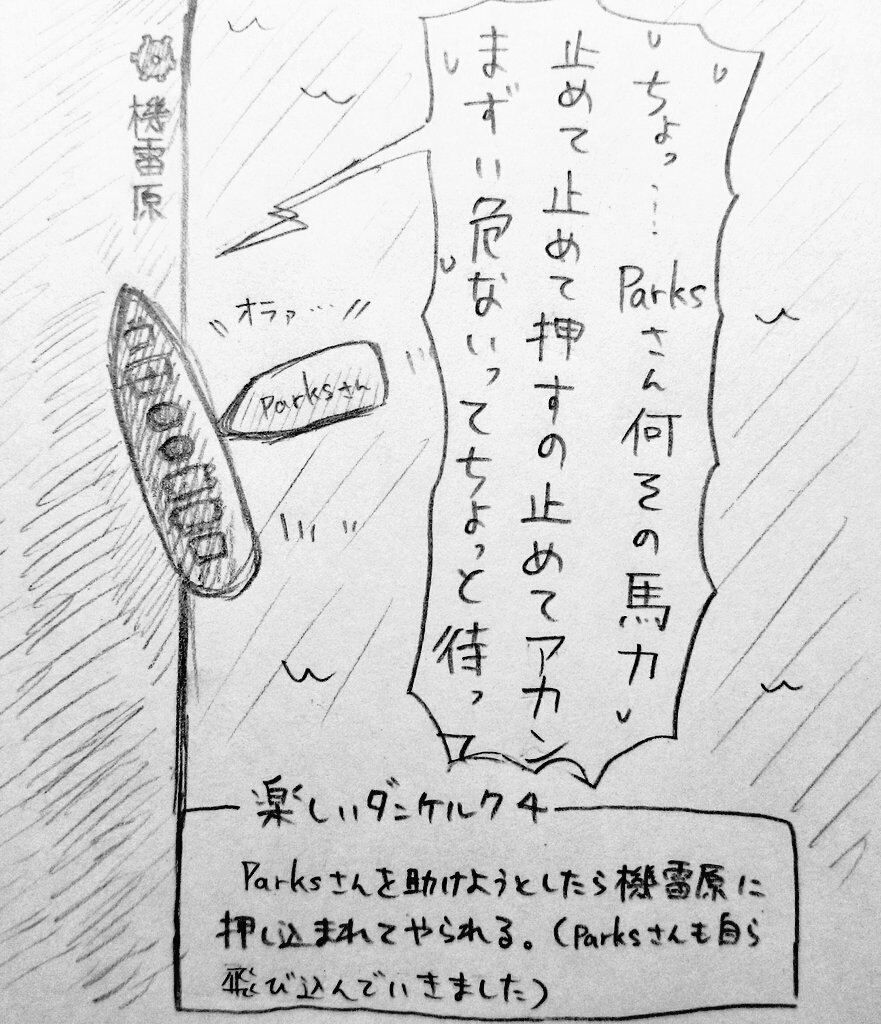 ちょっ…Parksさん何その馬力
止めて止めて押すの止めてアカン
まずい危ないってちょっと待っ
機雷原
オラァ…
Parksさん
楽しいダンケルク4
Parksさんを助けようとしたら機雷原に
押し込まれてやられる。(Parksさんも自ら
飛び込んでいきました)